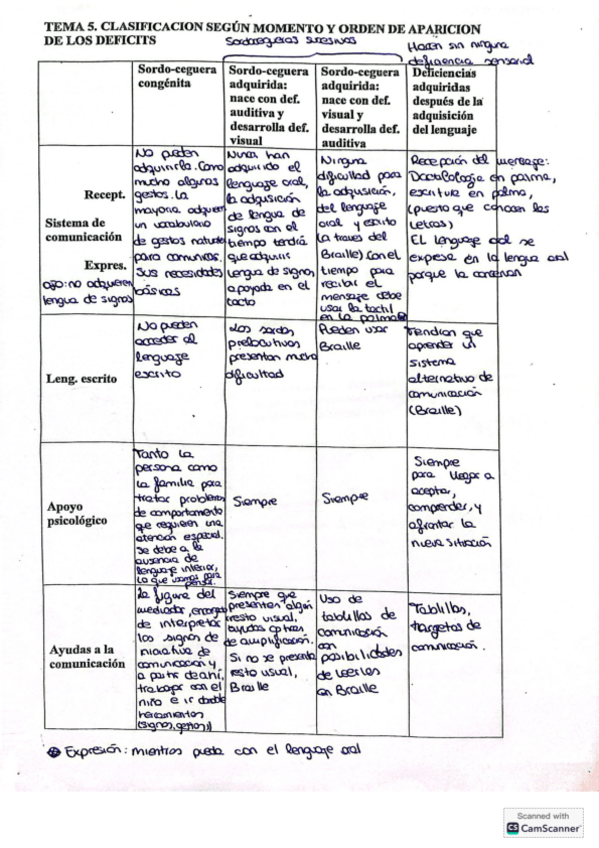 TEMA 5. CLASIFICACION SEGÚN MOMENTO Y ORDEN DE APARICION
DE LOS DEFICITS
Sordocegueras sucesivas
Nacen sin ninguna
deficiencia sensorial
Sordo-ceguera
congénita
Sordo-ceguera
adquirida:
nace con def.
auditiva y
desarrolla def.
visual
Sordo-ceguera
adquirida:
nace con def.
visual y
desarrolla def.
auditiva
Deficiencias
adquiridas
después de la
adquisición
del lenguaje
Recept.
Sistema de
comunicación
Expres.
ojo: no adquieren
lengua de signos
No pueden
adquirirla. Como
mucho algunos
gestos. La
mayoria adquiere
un vocabulario
de gestos naturales
para comunicar
sus necesidades
básicas
Nunca han
adquirido el
lenguaje oral,
la adquisición
de lengua de
signos con el
tiempo tendrá
que adquirir
lengua de signos
apoyada en el
tacto
Ninguna
dificultad para
la adquisición,
del lenguaje
oral y escrito
(a traves del
Braille) con el
tiempo para
recibir el
mensaje debe
usar la tactil
en la palma
Recepción del mensaje:
Dactilologia en palma,
escritura en palma,
(puesto que conocen las
letras)
El lenguaje oral se
expresa en la lengua oral
porque la conocian
Leng. escrito
No pueden
acceder al
lenguaje
escrito
Los sordos
prelocutivos
presentan mucha
dificultad
Pueden usar
Braille
Tendrian que
aprender un
sistema
alternativo de
comunicación
(Braille)
Apoyo
psicológico
Tanto la
persona como
la familia para
tratar problemas
de comportamiento
que requieren una
atencion especial.
Se debe a la
ausencia de
lenguaje interior,
lo que usamos para
pensar.
Siempre
Siempre
Siempre
para llegar a
aceptar,
comprender, y
afrontar la
nueva situación
Ayudas a la
comunicación
la figura del
mediador, encargado
de interpretar
los signos de
iniciativa de
comunicación y
a partir de ahi,
trabajar con el
niño e ir dandole
herramientas
(signos, gestos)
Siempre que
presenten algún
resto visual,
ayudas opticas
de amplificación.
Si no se presenta
resto visual,
Braille
Uso de
tablillas de
comunicación
con
posibilidades
de leerlas
en Braille
Tablillas,
targetas de
comunicación.
Expresión: mientras pueda con el lenguaje oral
Scanned with
CS CamScanner